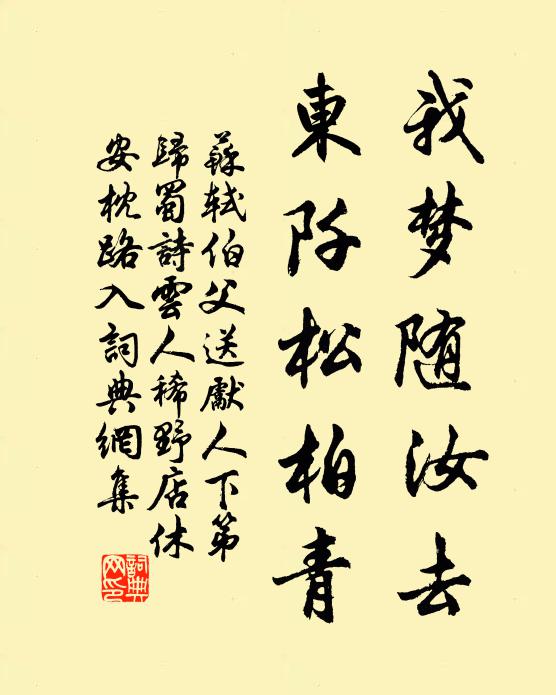 我梦随汝去
東阡松柏青
蘇軾伯父送獻人下第
歸蜀詩雲人稀野店休
安枕路入詞典網集
詞典
网印